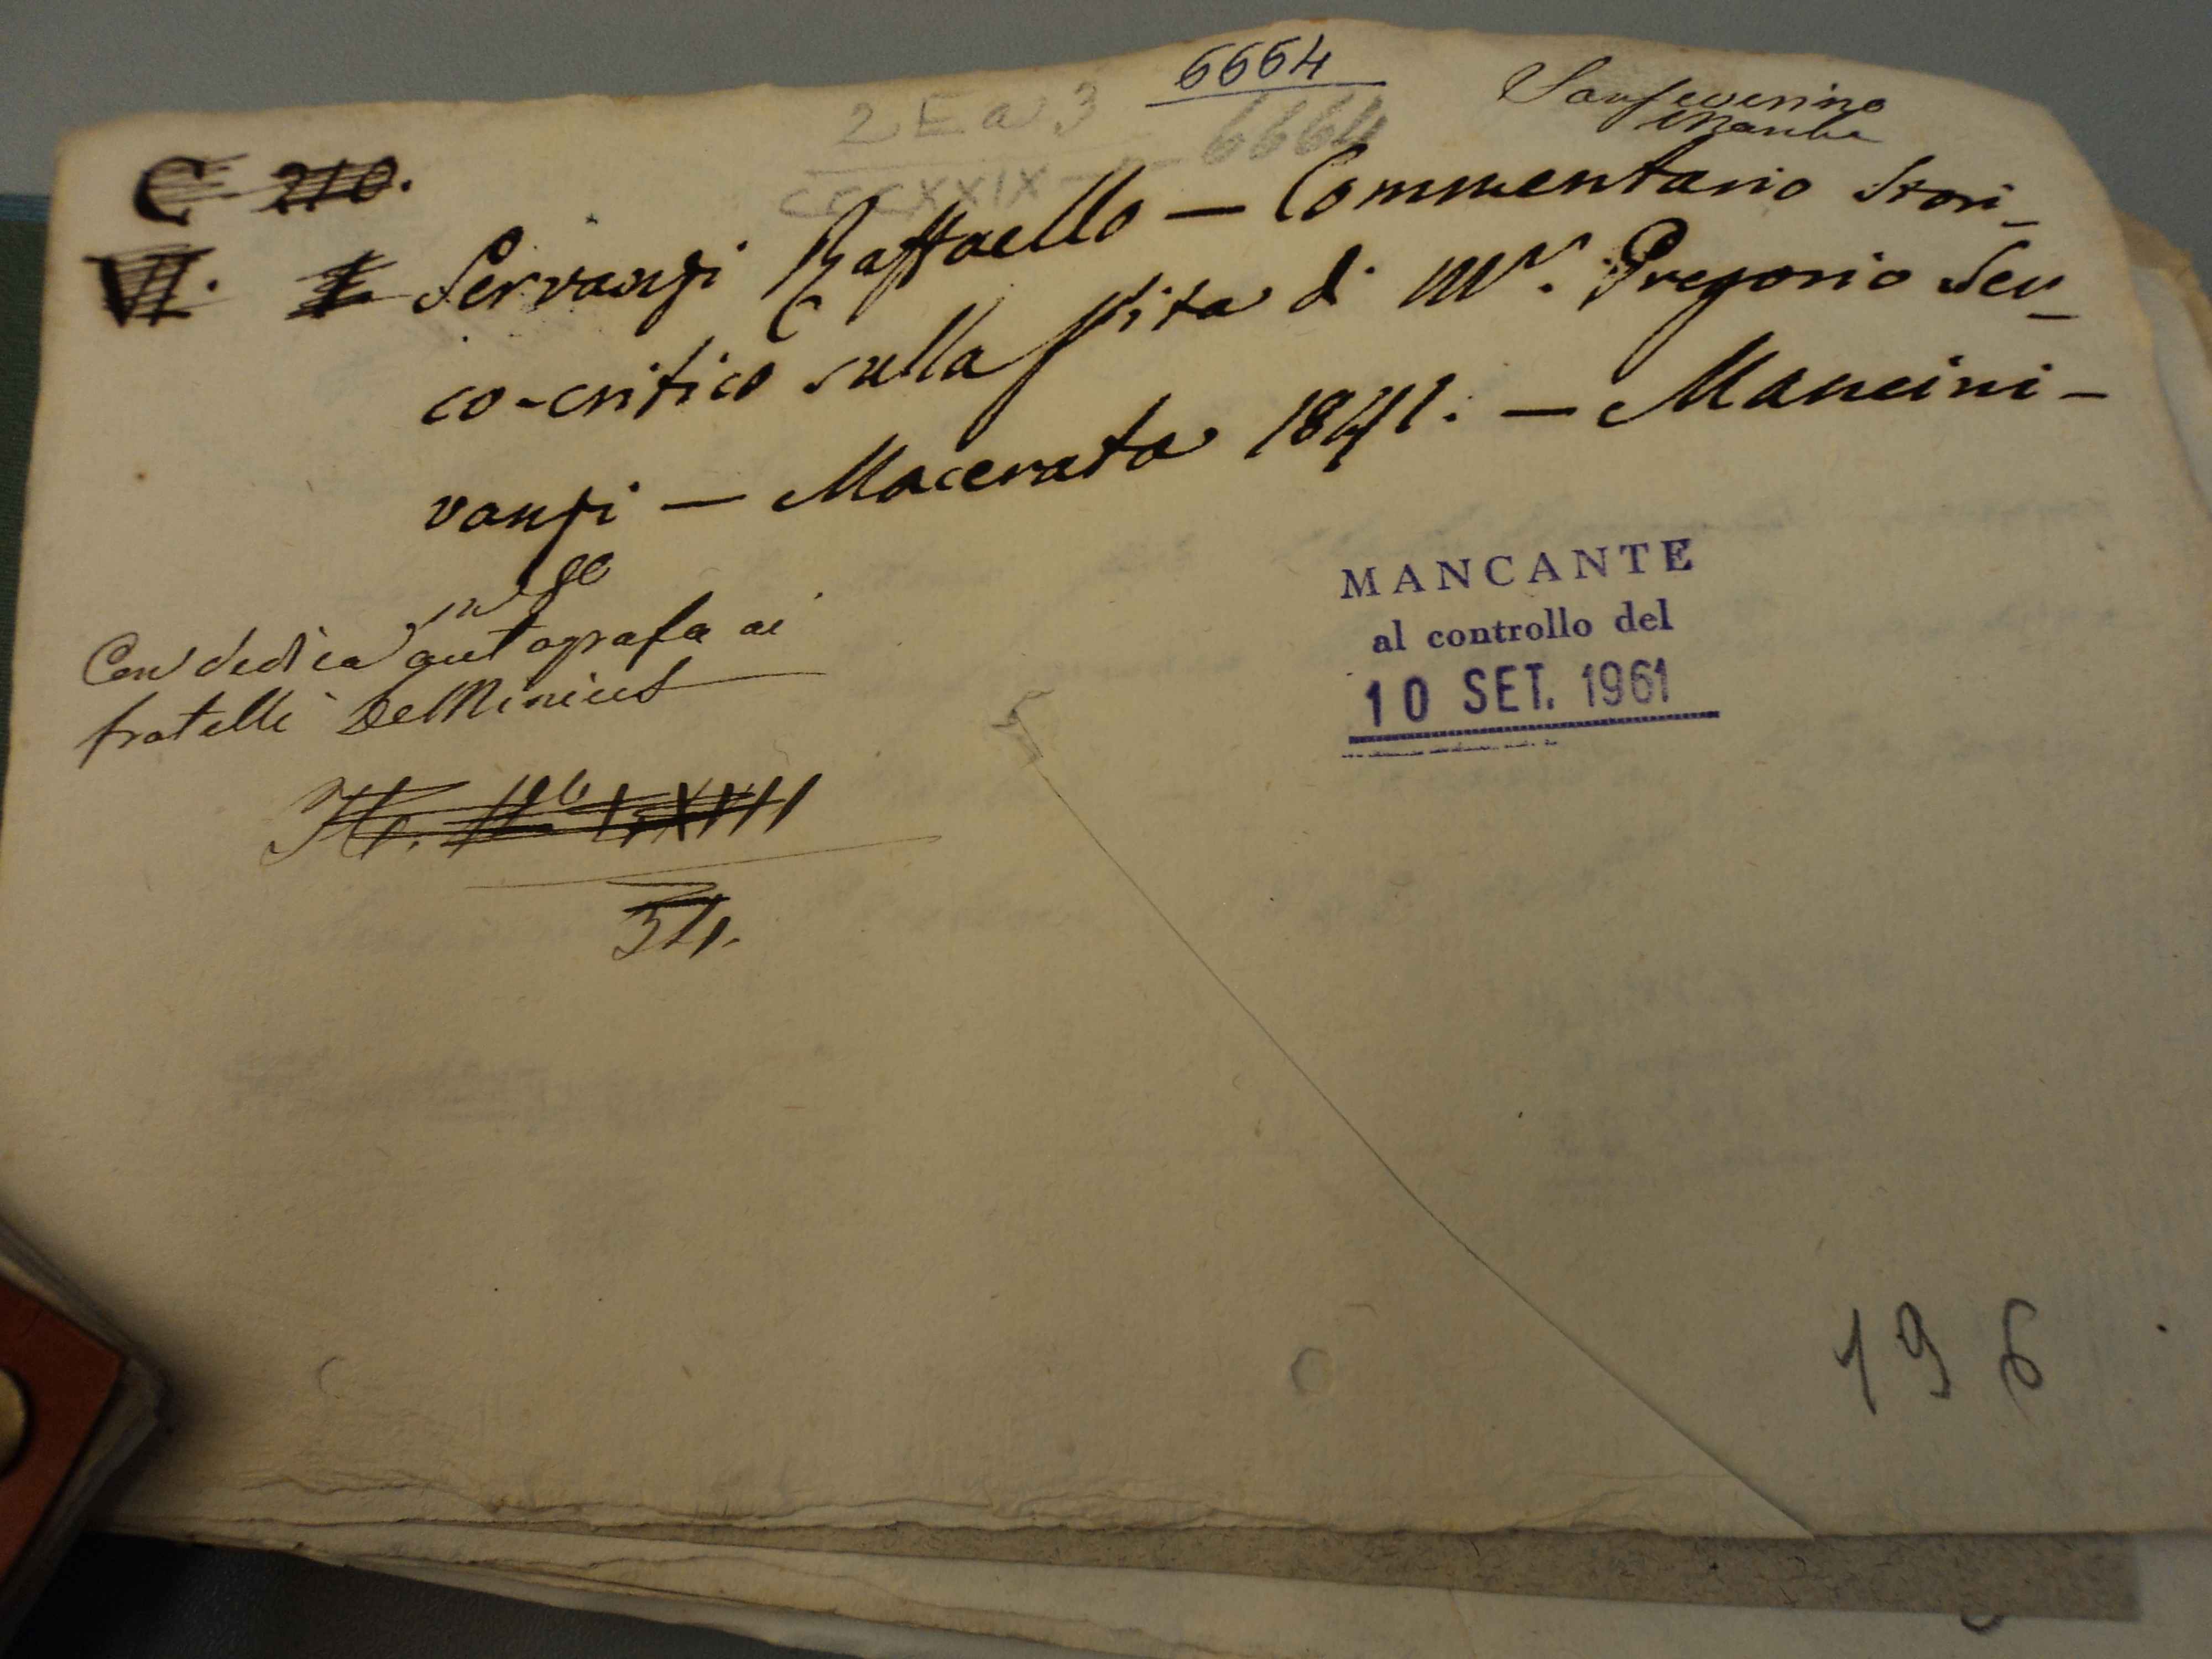 6664
2 E a 3
Sanseverino
Marche
CCCXXIX — 6664
C 210.
VI. I Servanzi Raffaello — Commentario Stori-
co-critico sulla Vita di Mr. Gregorio Ser-
vanzi — Macerata 1841. — Mancini -
in 8º
Con dedica autografa ai
fratelli De Minicis
MANCANTE
al controllo del
10 SET. 1961
34.
196